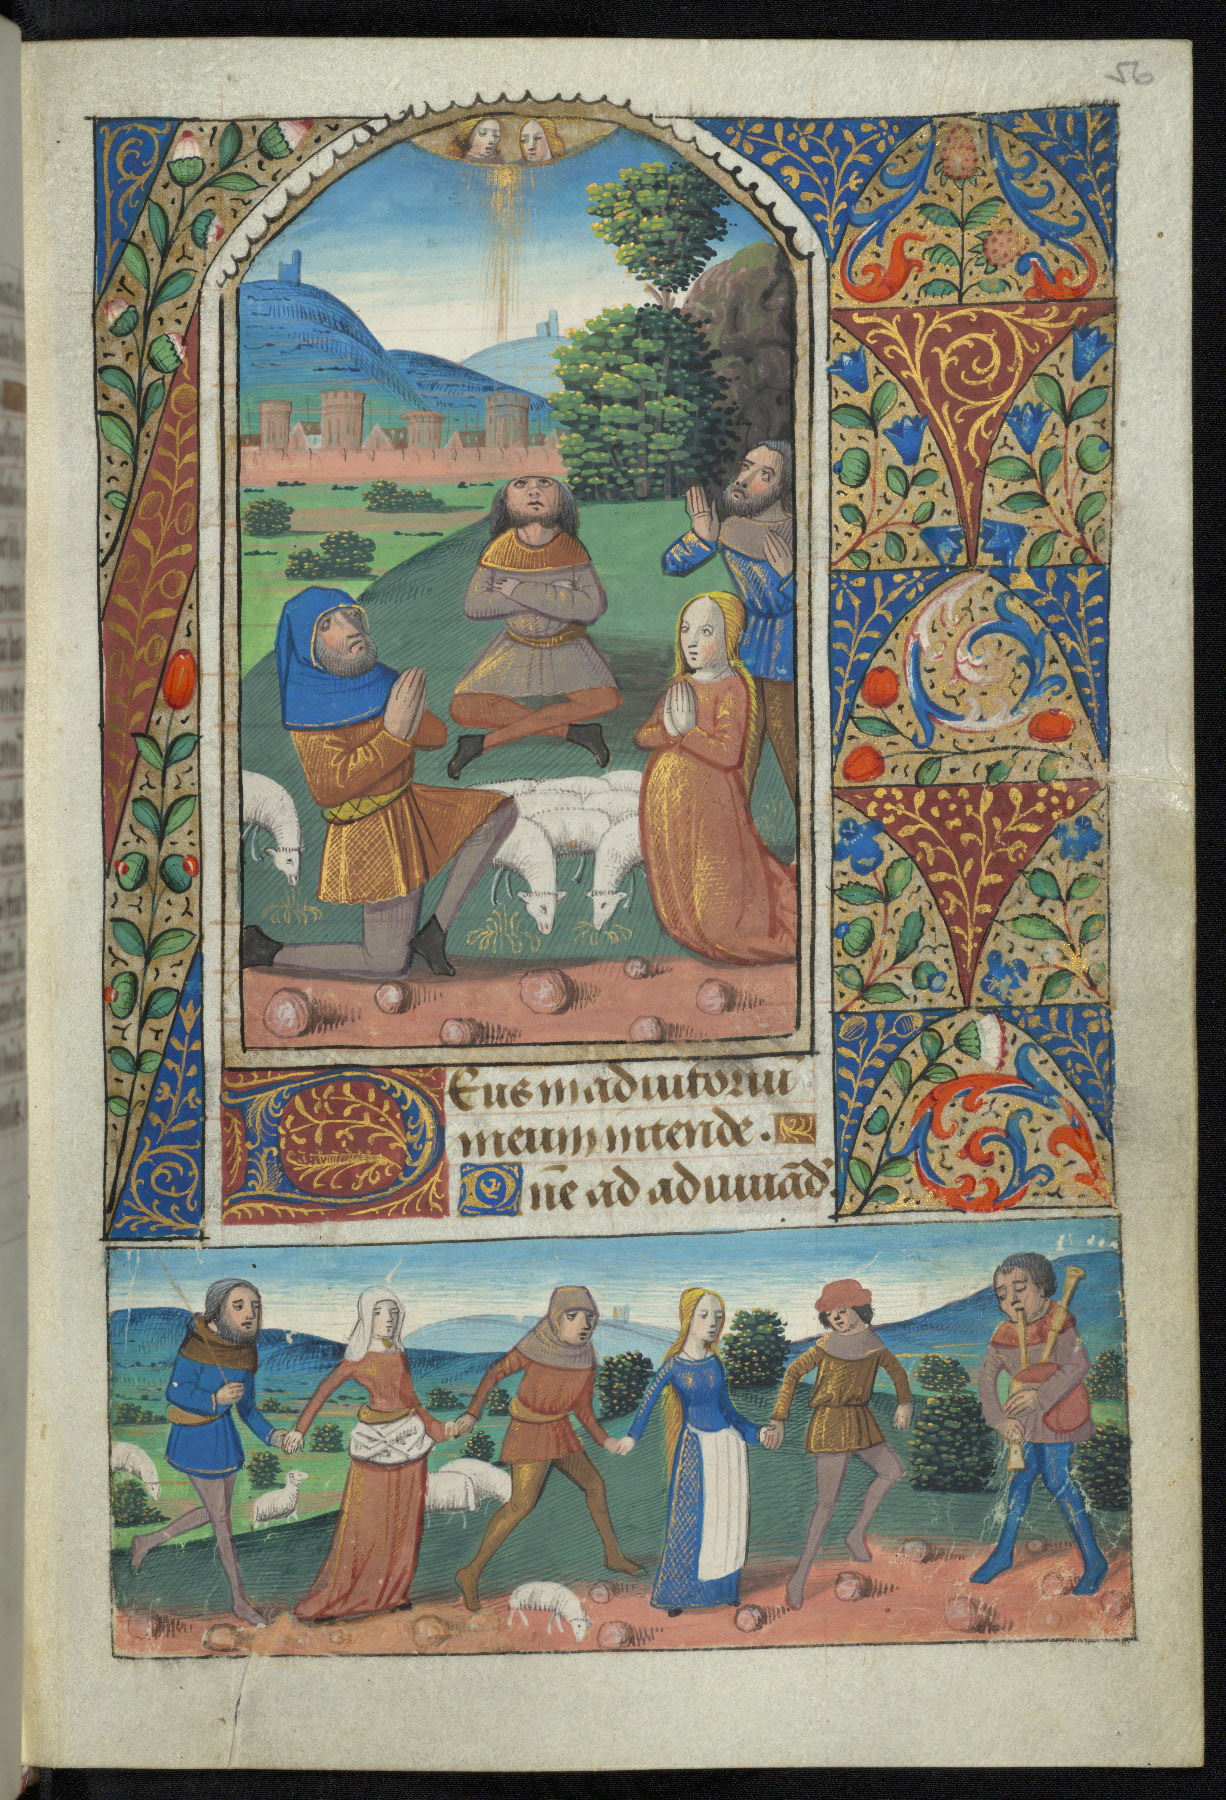 56
Deus in adiutoriu
meum intende.
Dn̄e ad adiuuād'.